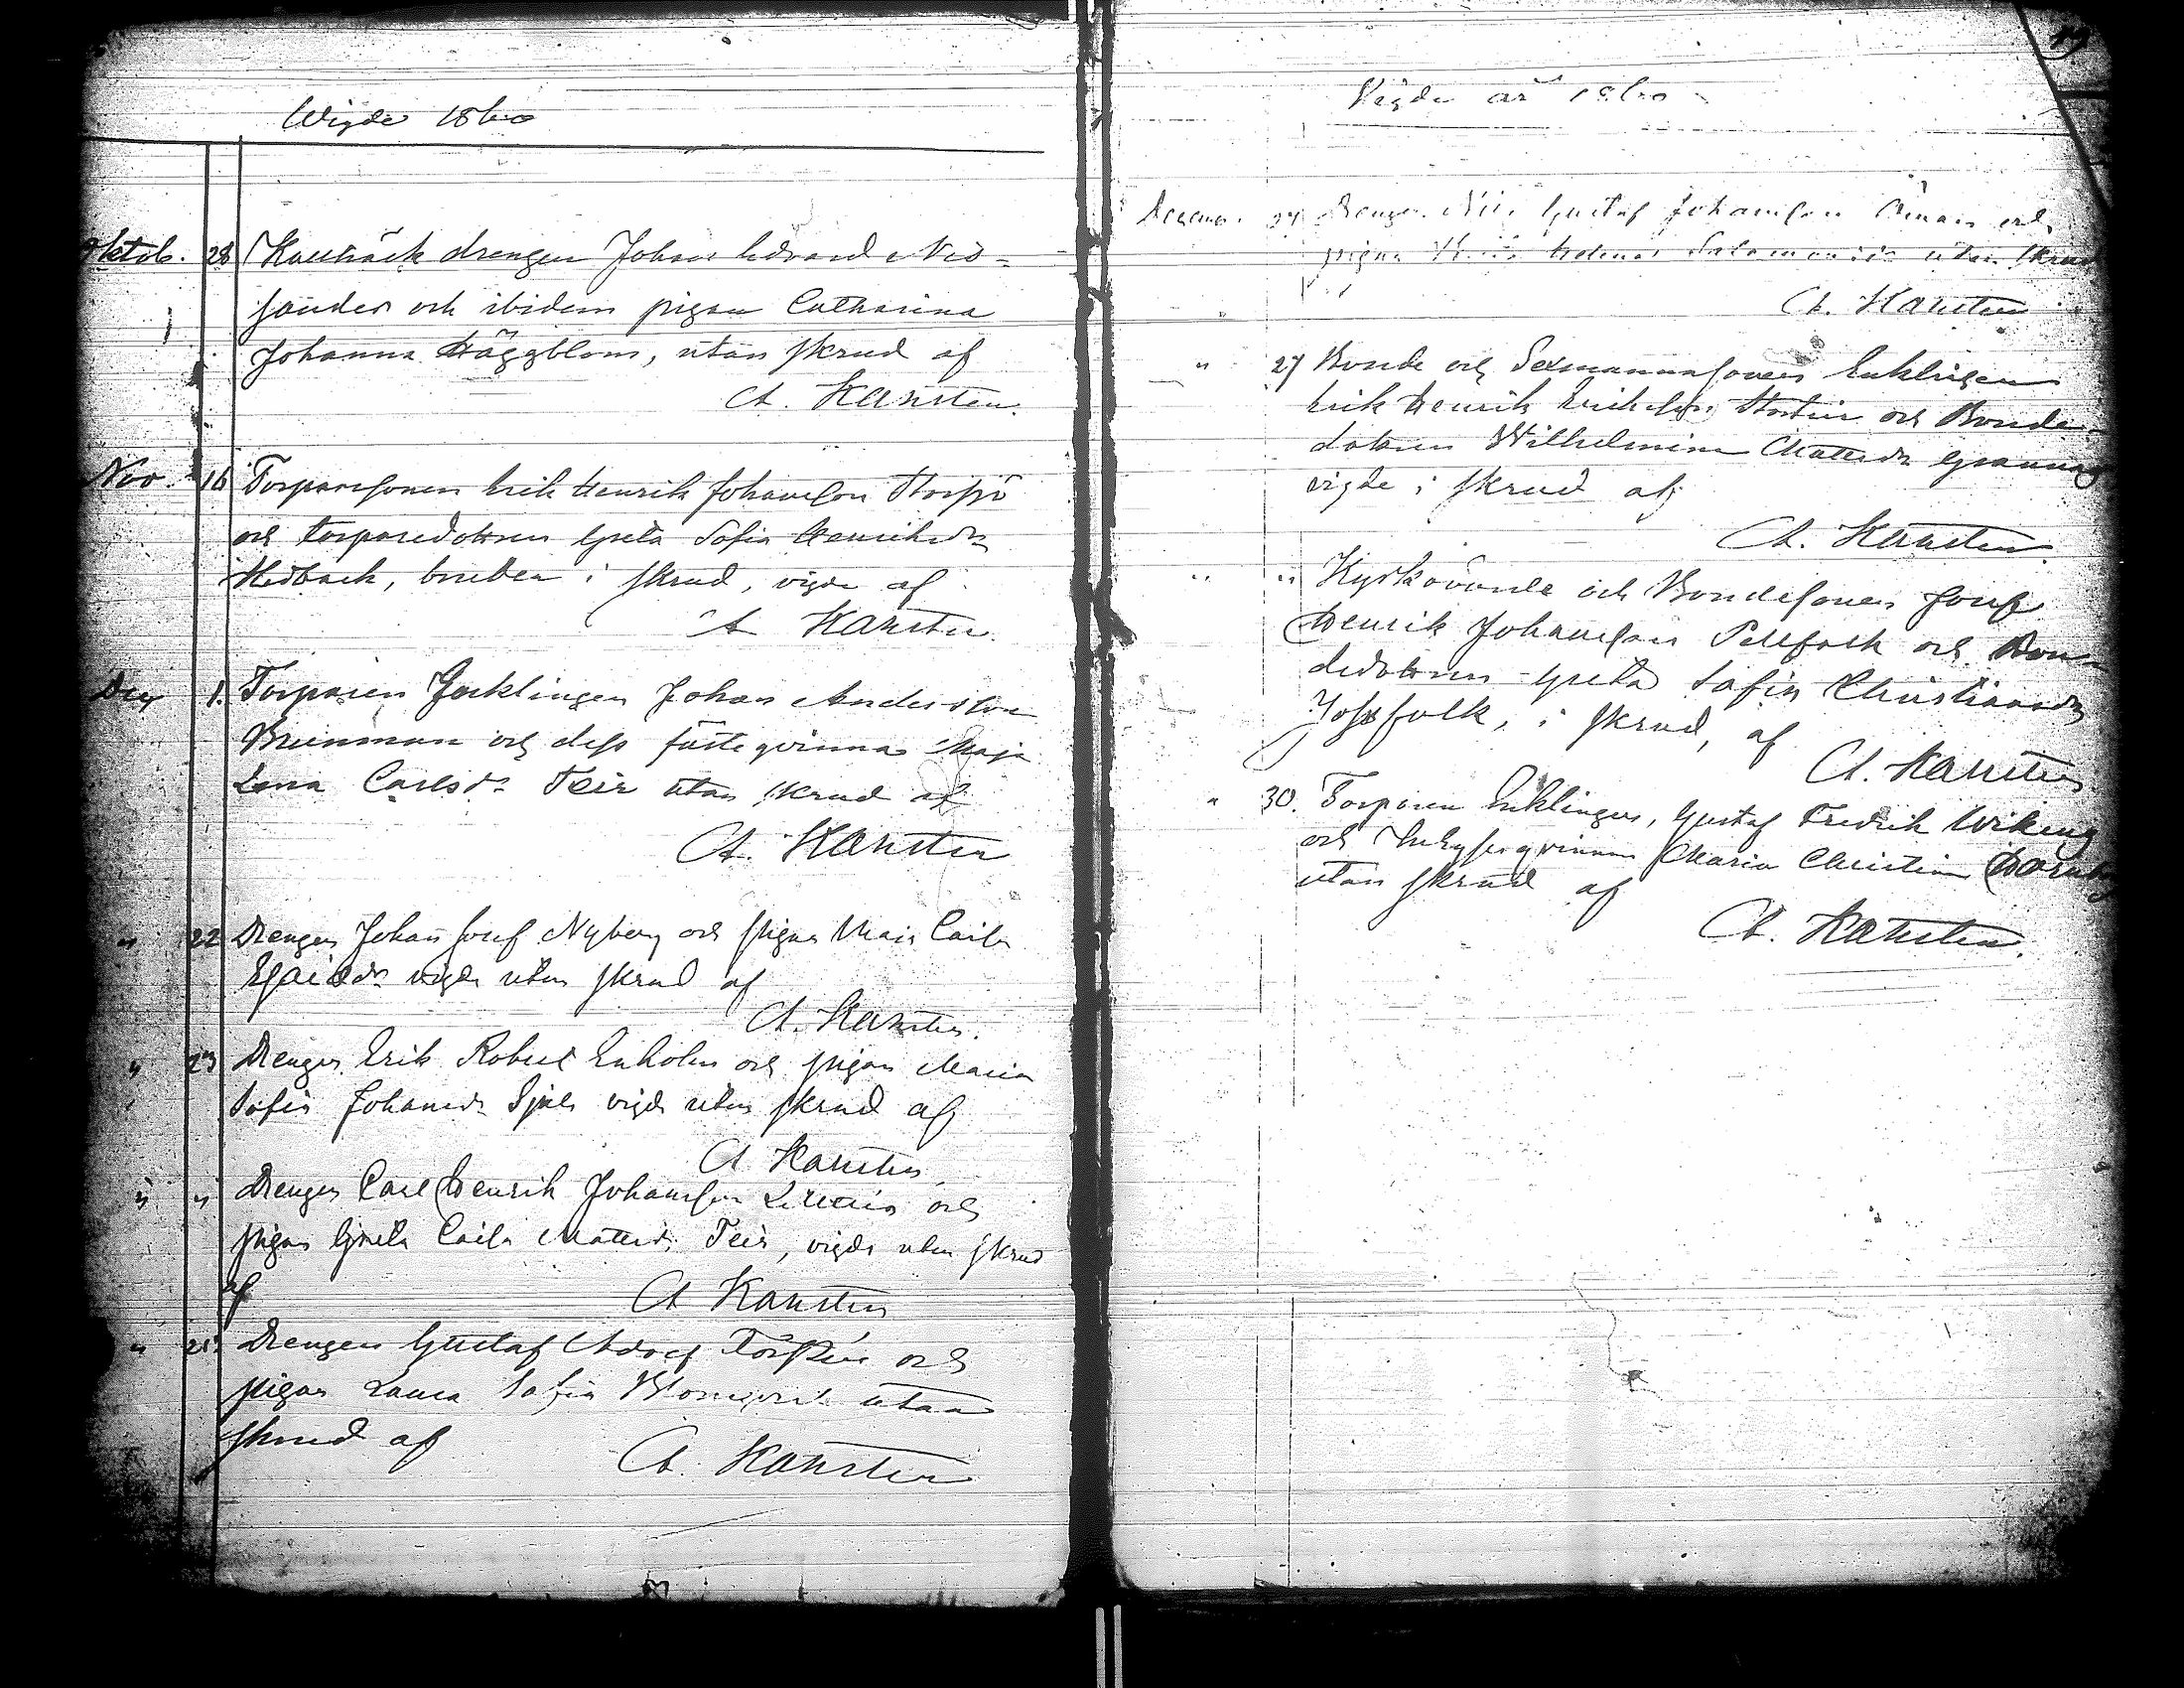 Wigde 1860
Oktob. 28 Kallbäck drengen Johan Edvard Ned=
sander och ibidem pigan Catharina
Johanna Häggblom, utan skrud af
A. Karsten.
Nov. 16 Torparesonen Erik Henrik Johansson Storsjö
och torparedottren Greta Sofia Henriksdr
Hedback, bruden i skrud, vigde af
A Karsten
Dec 1. Torparen Enklingen Johan Andersson
Brinnman och dess fästeqvinna Maja
Lena Carlsdr Teir utan skrud af
A. Karsten
" 22 Drengen Johan Josef Nyberg och pigan Maja Caisa
Esaiædr vigde utan skrud af
A. Karsten.
" 23 Drengen Erik Robert Enholm och pigan Maria
Sofia Johansdr vigde utan skrud af
A Karsten
" " Drengen Carl Henrik Johansson och
pigan Greta Caisa Mattsdr Teir, vigde utan skrud
af
A Karsten
" Drengen Gustaf Adolf och
pigan Sofia Blomqvist utan
skrud af
A. Karsten
Vigde år 1860
Decemb. Drengen Gustaf Johansson och
pigan Helena Salomonsdr utan skrud
A. Karsten
" 27 Bonde och Sexmannasonen Enklingen
Erik Henrik Eriksson och Bonde
dottren Wilhelmina Mattsdr
vigde i skrud af
A. Karsten
" " Kyrkovärde och Bondesonen Josef
Henrik Johansson Pellfolk och Bon=
dedottren Greta Sofia Christiansdr
Jossfolk, i skrud, af
A. Karsten
" 30. Torparen Enklingen, Gustaf Fredrik Wiking
och Inhysesqvinnan Maria Christina
utan skrud af
A. Karsten.